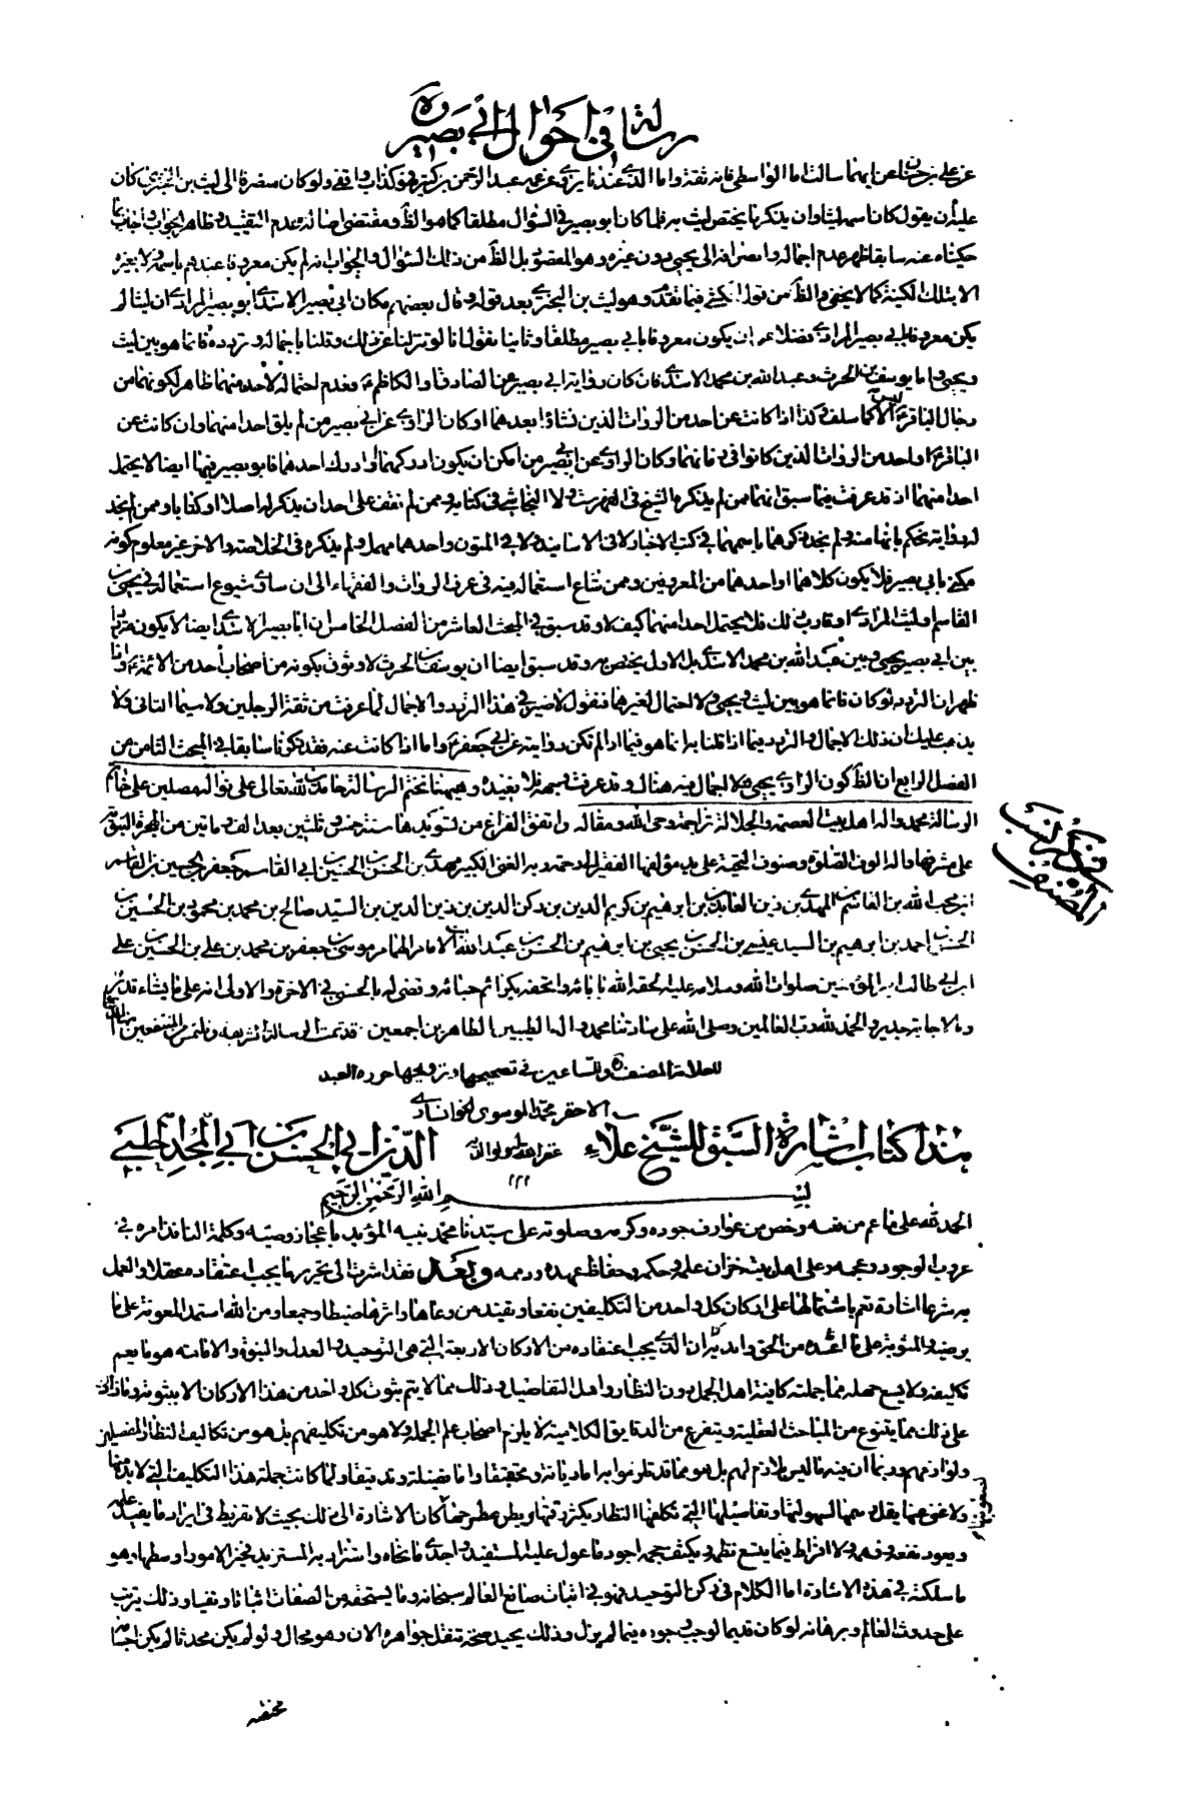 رسالة في احوال ابي بصير ره
عليه أن يقول كان اسمه ليثا وان يذكر ما يختص ليث به فلما كان ابو بصير في السؤال مطلقا كما هو الظ ومقتضى اصالة عدم التقييد وظاهر الجواب
حكيناه عنه سابقا ظهر عدم اجماله وانصرافه الى يحيى دون غيره وهو المقصود بل الظ من ذلك السؤال والجواب انه لم يكن معروفا عندهم باسمه ولا بغيره
الا بتلك الكنية كما لا يخفى والظ من قوله فيما تقدم وهو ليث بن البختري بعد قوله وقال بعضهم مكان ابي بصير الاسدي ابو بصير المرادي ان ليثا لم
يكن معروفا بابي بصير المرادي فضلا عن ان يكون معروفا بابي بصير مطلقا وثانيا نقول انا لو تنزلنا عن ذلك وقلنا باجماله وتردده فانما هو بين ليث
ويحيى واما يوسف بن الحرث وعبد الله بن محمد الاسدي فان كان رواية ابي بصير عن الصادق او الكاظم ع فعدم احتماله لأحد منهما ظاهر لكونهما من
رجال الباقر ع كما سلف وكذا اذا كانت عن احد من الرواة الذين نشاؤا بعدهما او كان الراوي عن ابي بصير من لم يلق احدا منهما وان كانت عن
الباقر ع او احد من الرواة الذين كانوا في زمانهما وكان الراوي عن ابي بصير من امكن ان يكون ادركهما او ادرك احدهما فابو بصير فيها ايضا لا يحتمل
احدا منهما اذ قد عرفت فيما سبق انهما ممن لم يذكره الشيخ في الفهرست ولا النجاشي في كتابه وممن لم نقف على احد ان يذكر له اصلا او كتابا وممن لم نجد
له رواية نحكم بانها منه ولم نجد ذكرهما باسمهما في كتب الاخبار لا في الاسانيد ولا في المتون واحدهما مهمل ولم يذكره في الخلاصة والاخر غير معلوم كونه
مكنى بابي بصير فلا يكون كلاهما او احدهما من المعروفين وممن شاع استعماله فيه في عرف الرواة والفقهاء الى ان ساوى شيوع استعماله في يحيى بن
القاسم او ليث المرادي او قارب ذلك فلا يحتمل احدا منهما كيف لا وقد سبق في البحث العاشر من الفصل الخامس ان ابا بصير الاسدي ايضا لا يكون مترددا
بين ابي بصير يحيى وبين عبد الله بن محمد الاسدي بل الاول يختص به وقد سبق ايضا ان يوسف بن الحرث لا وثوق بكونه من اصحاب أحد من الائمة ع واذا
ظهر ان التردد لو كان فانما هو بين ليث ويحيى ولا احتمال لغيرهما فنقول لا ضير في هذا التردد والاجمال لما عرفت من ثقة الرجلين ولا سيما الثاني ولا
يذهب عليك ان ذلك الاجمال والتردد فيما اذا قلنا به انما هو فيما اذا لم تكن روايته عن ابي جعفر ع واما اذا كانت عنه فقد ذكرنا سابقا في المبحث الثامن من
الفصل الرابع ان الظ كون الراوي يحيى ولا اجمال فيه هناك وقد عرفت وجهه فلا نعيده وهيهنا نختم الرسالة حامدين لله تعالى على نواله مصلين على خاتم
الرسالة محمد واله اهل بيت العصمة والجلالة تراجمة وحى الله ومقاله واتفق الفراغ من تسويدها سنة خمس وثلثين بعد الف ومائتين من الهجرة النبوية
على مشرفها واله الوف الصلوة وصنوف التحية على يد مؤلفها الفقير الى رحمة ربه الغني الكبير مهدي بن الحسن الحسين ابي القاسم جعفر بن الحسين بن القاسم
ابن محب الله بن القاسم بن المهدي بن زين العابدين بن ابرهيم بن كريم الدين بن ركن الدين بن زين الدين بن السيد صالح بن محمد بن محمود بن الحسين بن
الحسن بن احمد بن ابرهيم بن السيد عيسى بن الحسن بن يحيى بن ابرهيم بن الحسن بن عبد الله بن الامام الهمام موسى بن جعفر بن محمد بن علي بن الحسين بن علي
ابن ابي طالب امير المؤمنين صلوات الله وسلامه عليه الحقه الله بابائه واتحفه بكرائم حبائه وقضى له بالحسنى في الاخرة والاولى انه على ما يشاء قدير
وبالاجابة جدير والحمد لله رب العالمين وصلى الله على سادتنا محمد واله الطيبين الطاهرين اجمعين قد تمت الرسالة الشريفة
للعلامة المصنف ره وللساعين في تصحيحها وترويجها حرره العبد
الاحقر محمد الموسوي الخوانساري
في ذكر نسب
المصنف ره
هذا كتاب اشارة السبق للشيخ علاء الدين ابي الحسن بن ابي المجد الحلبي
غفر الله له ولوالديه
بسم الله الرحمن الرحيم
الحمد لله على ما عم من نعمه وخص من عوارف جوده وكرمه وصلوته على سيدنا محمد نبيه المؤيد باعجاز وصيه وكلمة النافذ امره في
عرب الوجود وعجمه وعلى اهل بيته خزان علمه وحكمه وحفاظ عهده وذممه وبعد فقد اشرت الى تحرير ما يجب اعتقاده عقلا والعمل
به شرعا اشارة تعم باشتمالها على اركان كل واحد من التكليفين نفعا وتفيد من وعاها واثرها ضبطا وجمعا ومن الله استمد المعونة على ما
يرضيه والمثوبة على ما اعتمده من الحق وابديه ان الذي يجب اعتقاده من الاركان الاربعة التي هي التوحيد والعدل والنبوة والامامة هو ما يعم
تكليفه ولا يسع جهله مما جملته كافية اهل الجمل دون النظار واهل التفاصيل وذلك مما لا يتم ثبوت كل واحد من هذه الاركان الا بثبوته وما زاد
على ذلك مما يتنوع من المباحث العقلية ويتفرع من الدقايق الكلامية لا يلزم اصحاب علم الجملة ولا هو من تكليفهم بل هو من تكاليف النظار المفصلين
ولوازمهم وربما ان فيه ما ليس بلازم لهم بل هو مما قد تلزموا به اما ديانة وتحقيقا واما فضيلة وتدقيقا ولما كانت جملة هذا التكليف التي لا بد منها
ولا غنى عنها يقل حجمها لسهولتها وتفاصيلها التي تكلفها النظار يكثر دقتها ويطول لصعوبتها كان الاشارة الى ذلك بحيث لا تفريط في ايراد ما يفيد علمه
ويعود نفعه وفهمه ولا افراط فيما يتسع نظمه ويكثف حجمه اجود ما عول عليه المستفيد واجدى ما نحاه واستزاد به المستزيد فخير الامور اوسطها وهو
ما سلكته في هذه الاشارة اما الكلام في ركن التوحيد فهو في اثبات صانع العالم سبحانه وما يستحقه من الصفات اثباتا ونفيا وذلك يترتب
على حدوث العالم وبرهانه لو كان قديما لوجب وجوده فيما لم يزل وذلك يحيل صحة تنقل جواهره الان وهو محال ولو لم يكن محدثا لم يكن اجسا
مختصة